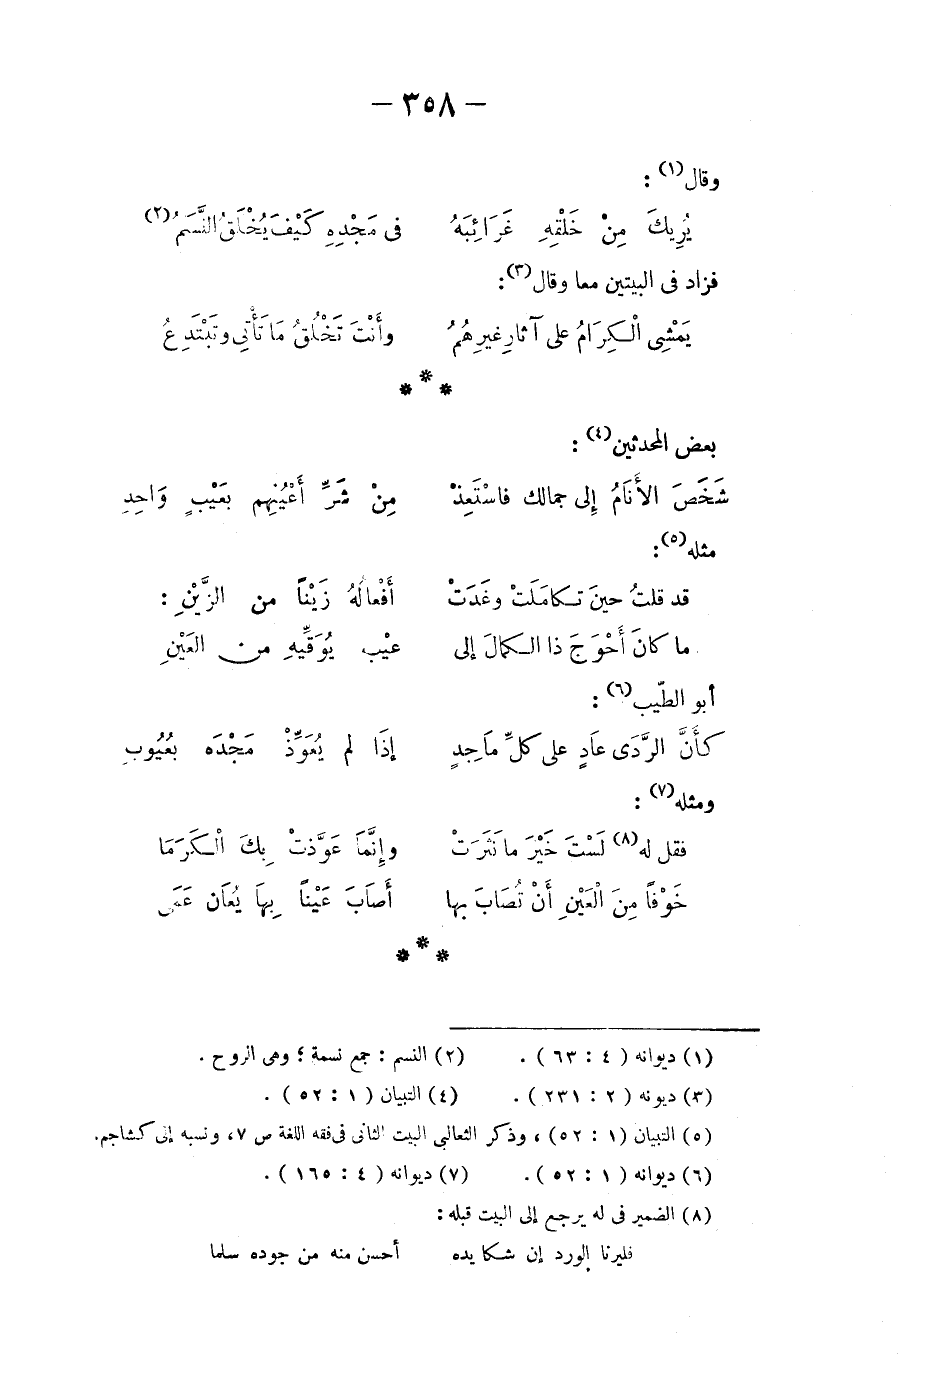 — ٣٥٨ —
وقال(١) :
يُرِيكَ مِنْ خَلْقِهِ غَرَائِبَهُ فى مَجْدِهِ كَيْفَ يُخْلَقُ النَّسَمُ(٢)
فزاد فى البيتين معا وقال(٣) :
يَمْشِى الْكِرَامُ على آثارِ غيرِهُمُ وأَنْتَ تَخْلُقُ مَا تَأْتِى وتَبْتَدِعُ
* * *
بعض المحدثين(٤) :
شَخَصَ الأَنَامُ إِلى جمالك فاسْتَعِذْ مِنْ شَرِّ أَعْيُنِهِم بعَيْبٍ وَاحِدِ
مثله(٥) :
قد قلتُ حينَ تكامَلَتْ وغَدَتْ أَفْعالُهُ زَيْناً من الزَّيْنِ :
ما كانَ أَحْوَجَ ذا الكمالَ إلى عيْب يُوَقِّيهِ من العَيْنِ
أبو الطّيب(٦) :
كَأَنَّ الرَّدَى عَادٍ على كلِّ مَاجِدٍ إذَا لم يُعَوِّذْ مَجْدَه بعُيُوبِ
ومثله(٧) :
فقل له(٨) لَسْتَ خَيْرَ ما نَثَرَتْ وإنَّمَا عَوَّذتْ بِكَ الْكَرَمَا
خَوْفاً مِنَ الْعَيْنِ أَنْ تُصَابَ بها أَصَابَ عَيْناً بِهَا يُعَان عَمَى
* * *
(١) ديوانه ( ٤ : ٦٣ ) . (٢) النسم : جمع نسمة ؛ وهى الروح .
(٣) ديونه ( ٢ : ٢٣١ ) . (٤) التبيان ( ١ : ٥٢ ) .
(٥) التبيان (١ : ٥٢) ، وذكر الثعالبي البيت الثانى فى فقه اللغة ص ٧، ونسبه إلى كشاجم.
(٦) ديوانه ( ١ : ٥٢ ) . (٧) ديوانه ( ٤ : ١٦٥ ) .
(٨) الضمير فى له يرجع إلى البيت قبله :
فليرنا الورد إن شكا يده أحسن منه من جوده سلما